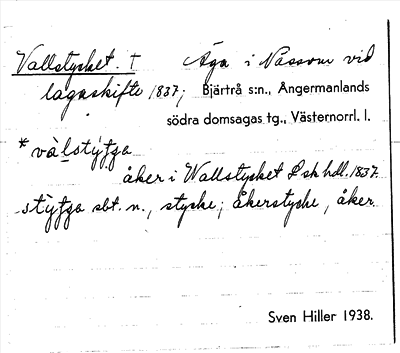 Vallstycket. † Äga i Nässom vid
lagaskifte 1837; Bjärtrå s:n., Ångermanlands
södra domsagas tg., Västernorrl. l.
* våḷstýʃʒa
åker i Wallstycket Lsk hdl. 1837.
stýʃʒa sbt. n., stycke; åkerstycke, åker.
Sven Hiller 1938.